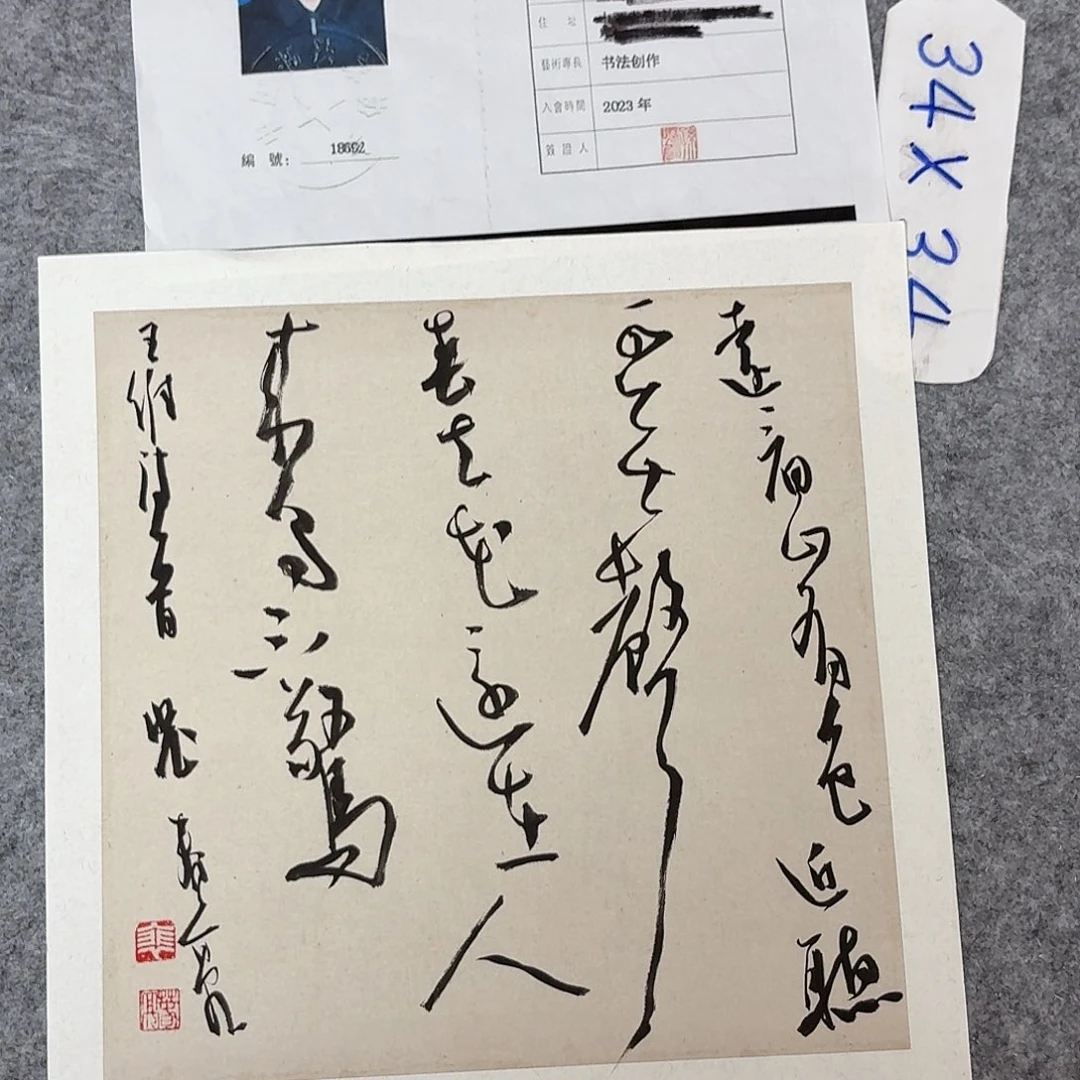 住址
藝術專長 书法创作
入會時間 2023年
簽證人
編號:
34X34
遠看山有色近聽
水無聲
春去花還在人
來鳥不驚
王維詩一首